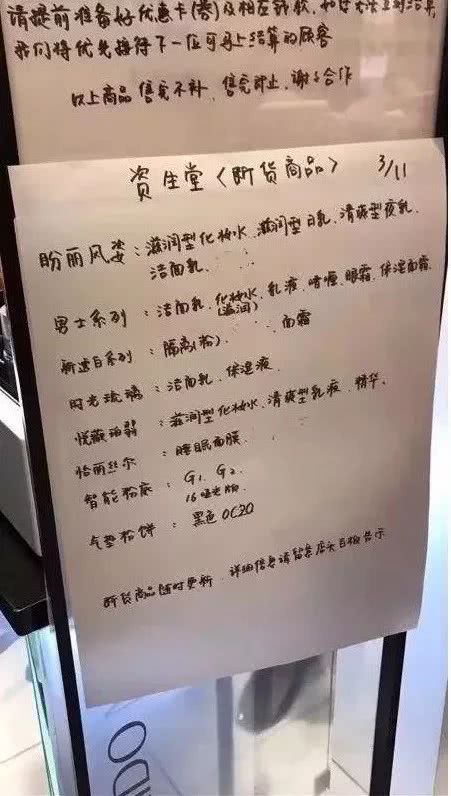 请提前准备好优惠卡(券)及相应钱款,如您无法立即结算,
我们将优先接待下一位可马上结算的顾客
以上商品售完不补,售完即止,谢谢合作
資生堂〈断货商品〉 3/11
盼丽风姿:滋润型化妆水.滋润型日乳.清爽型夜乳.
洁面乳.
男士系列:洁面乳.化妆水(滋润).乳液.啫喱.眼霜.保湿面霜
新透白系列:隔离(粉). 面霜
时光琉璃:洁面乳.保湿液.
悦薇珀翡:滋润型化妆水.清爽型乳液.精华.
怡丽丝尔:睡眠面膜.
智能粉底:G1.G2.
16哑光版.
气垫粉饼:黑色OC20
断货商品随时更新.详细信息请留意店头白板告示
IDO